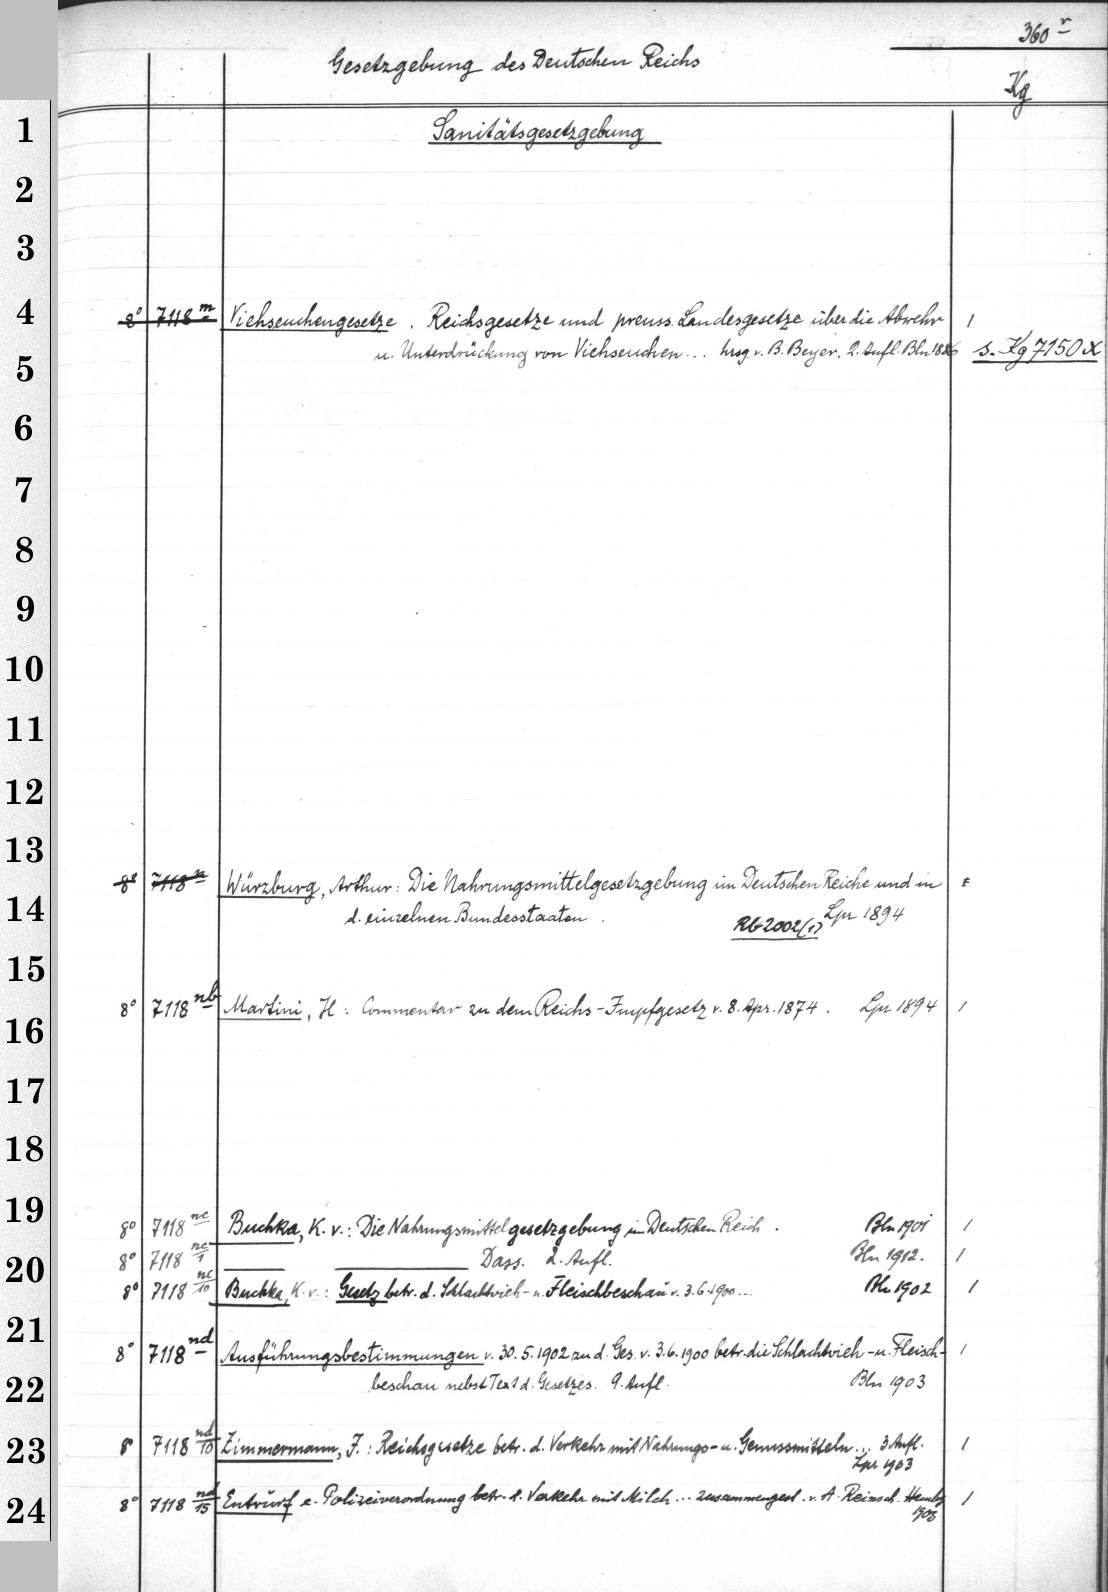 360 r
Gesetzgebung des Deutschen Reichs
Kg
1 Sanitätsgesetzgebung
2
3
4 8° 7118 m Viehseuchengesetze. Reichsgesetze und preuss. Landesgesetze über die Abwehr 1
5 u. Unterdrückung von Viehseuchen... hrsg. v. B. Beyer. 2. Aufl. Bln 1886 s. Kg 7150 x
6
7
8
9
10
11
12
13
8° 7118 n Würzburg, Arthur: Die Nahrungsmittelgesetzgebung im Deutschen Reiche und in
14 d. einzelnen Bundesstaaten. Lpz 1894
RG 2002 (1)
15
8° 7118 nb Martini, H: Commentar zu dem Reichs-Impfgesetz v. 8. Apr. 1874. Lpz 1894 1
16
17
18
19
8° 7118 nc Buchka, K. v.: Die Nahrungsmittelgesetzgebung im Deutschen Reich. Bln 1901 1
8° 7118 nc/1 Dass. 2. Aufl. Bln 1912. 1
20
8° 7118 nc/10 Buchka, K. v.: Gesetz betr. d. Schlachtvieh- u. Fleischbeschau v. 3.6.1900... Bln 1902 1
21
8° 7118 nd Ausführungsbestimmungen v. 30.5.1902 zu d. Ges. v. 3.6.1900 betr. die Schlachtvieh- u. Fleisch- 1
22 beschau nebst Text d. Gesetzes. 9. Aufl. Bln 1903
23 8° 7118 nd/10 Zimmermann, F.: Reichsgesetze betr. d. Verkehr mit Nahrungs- u. Genussmitteln... 3 Aufl. 1
Lpz 1903
24 8° 7118 nd/15 Entwurf e. Polizeiverordnung betr. d. Verkehr mit Milch... zusammengest. v. A. Reinsch. Hambg 1
1908